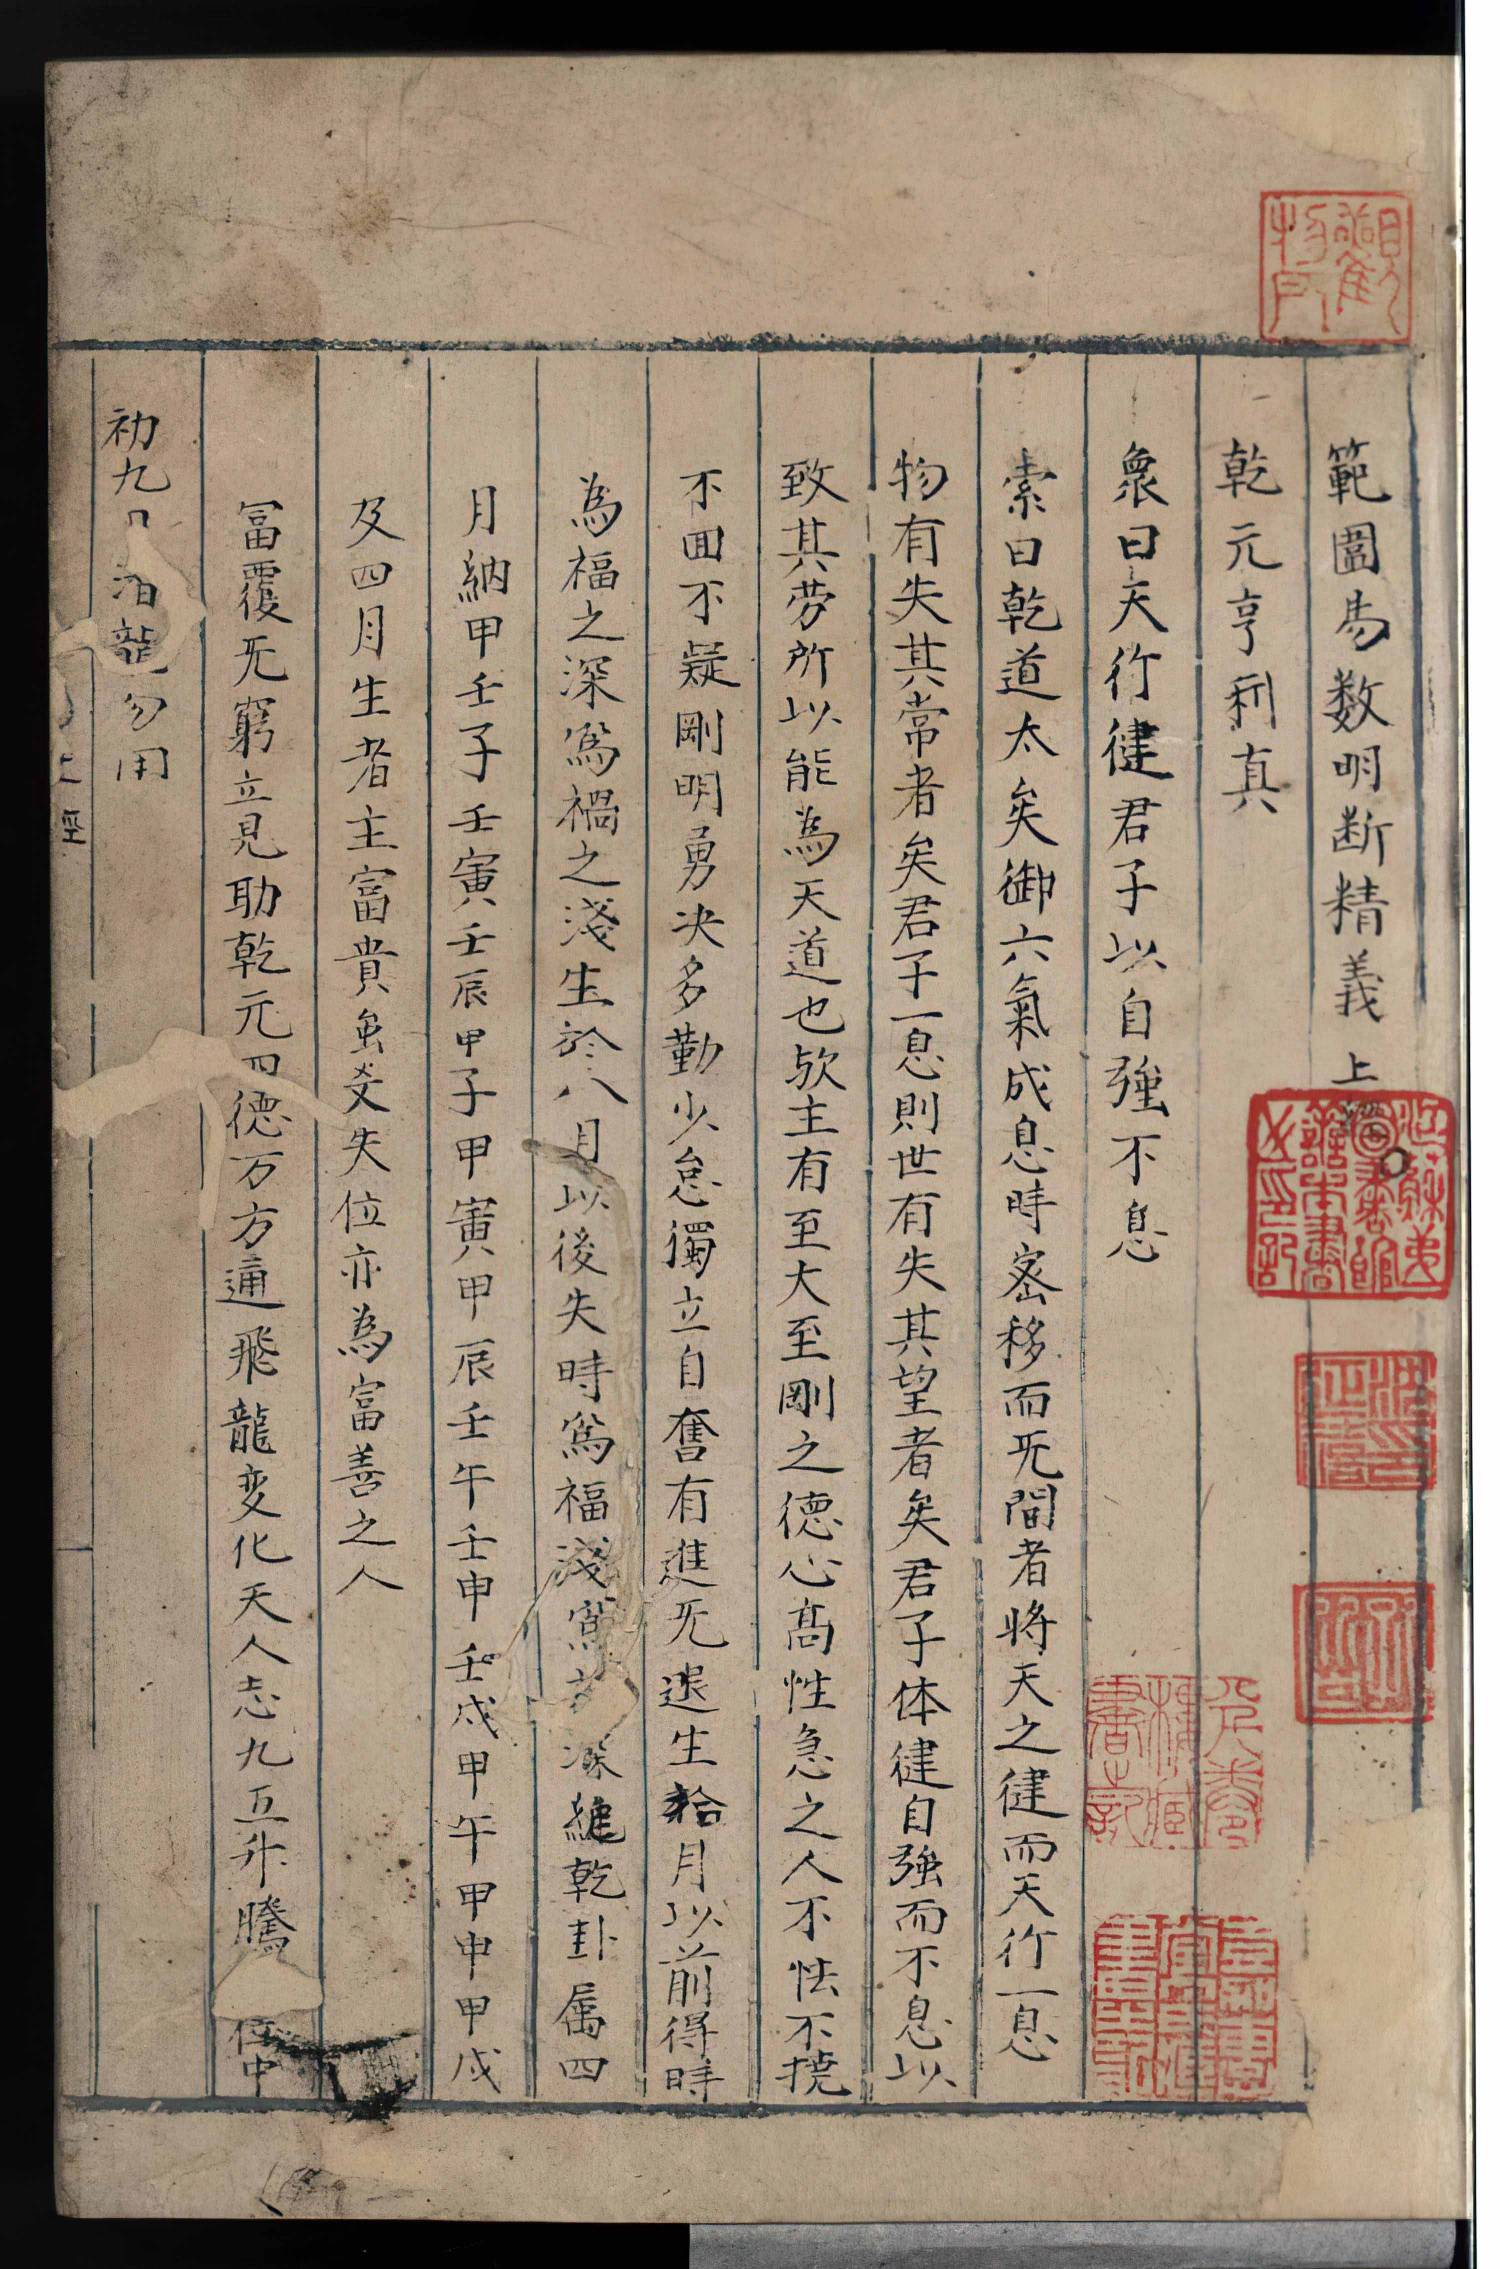 範圍易数明断精義 上
乾元亨利真
象曰天行健君子以自強不息
索曰乾道太矣御六氣成息時密移而旡間者將天之健而天行一息
物有失其常者矣君子一息則世有失其望者矣君子体健自強而不息以
致其劳所以能為天道也欤主有至大至剛之德心髙性急之人不怯不撓
不囬不疑剛明勇决多勤少怠獨立自奮有進旡退生拾月以前得時
為福之深爲禍之淺生於八月以後失時爲福淺爲深縂乾卦属四
月納甲壬子壬寅壬辰甲子甲寅甲辰壬午壬申壬戌甲午甲申甲戌
及四月生者主富貴虽爻失位亦為富善之人
冨覆旡窮立見助乾元四德万方通飛龍变化天人志九五升騰位中
初九龍勿用
上經